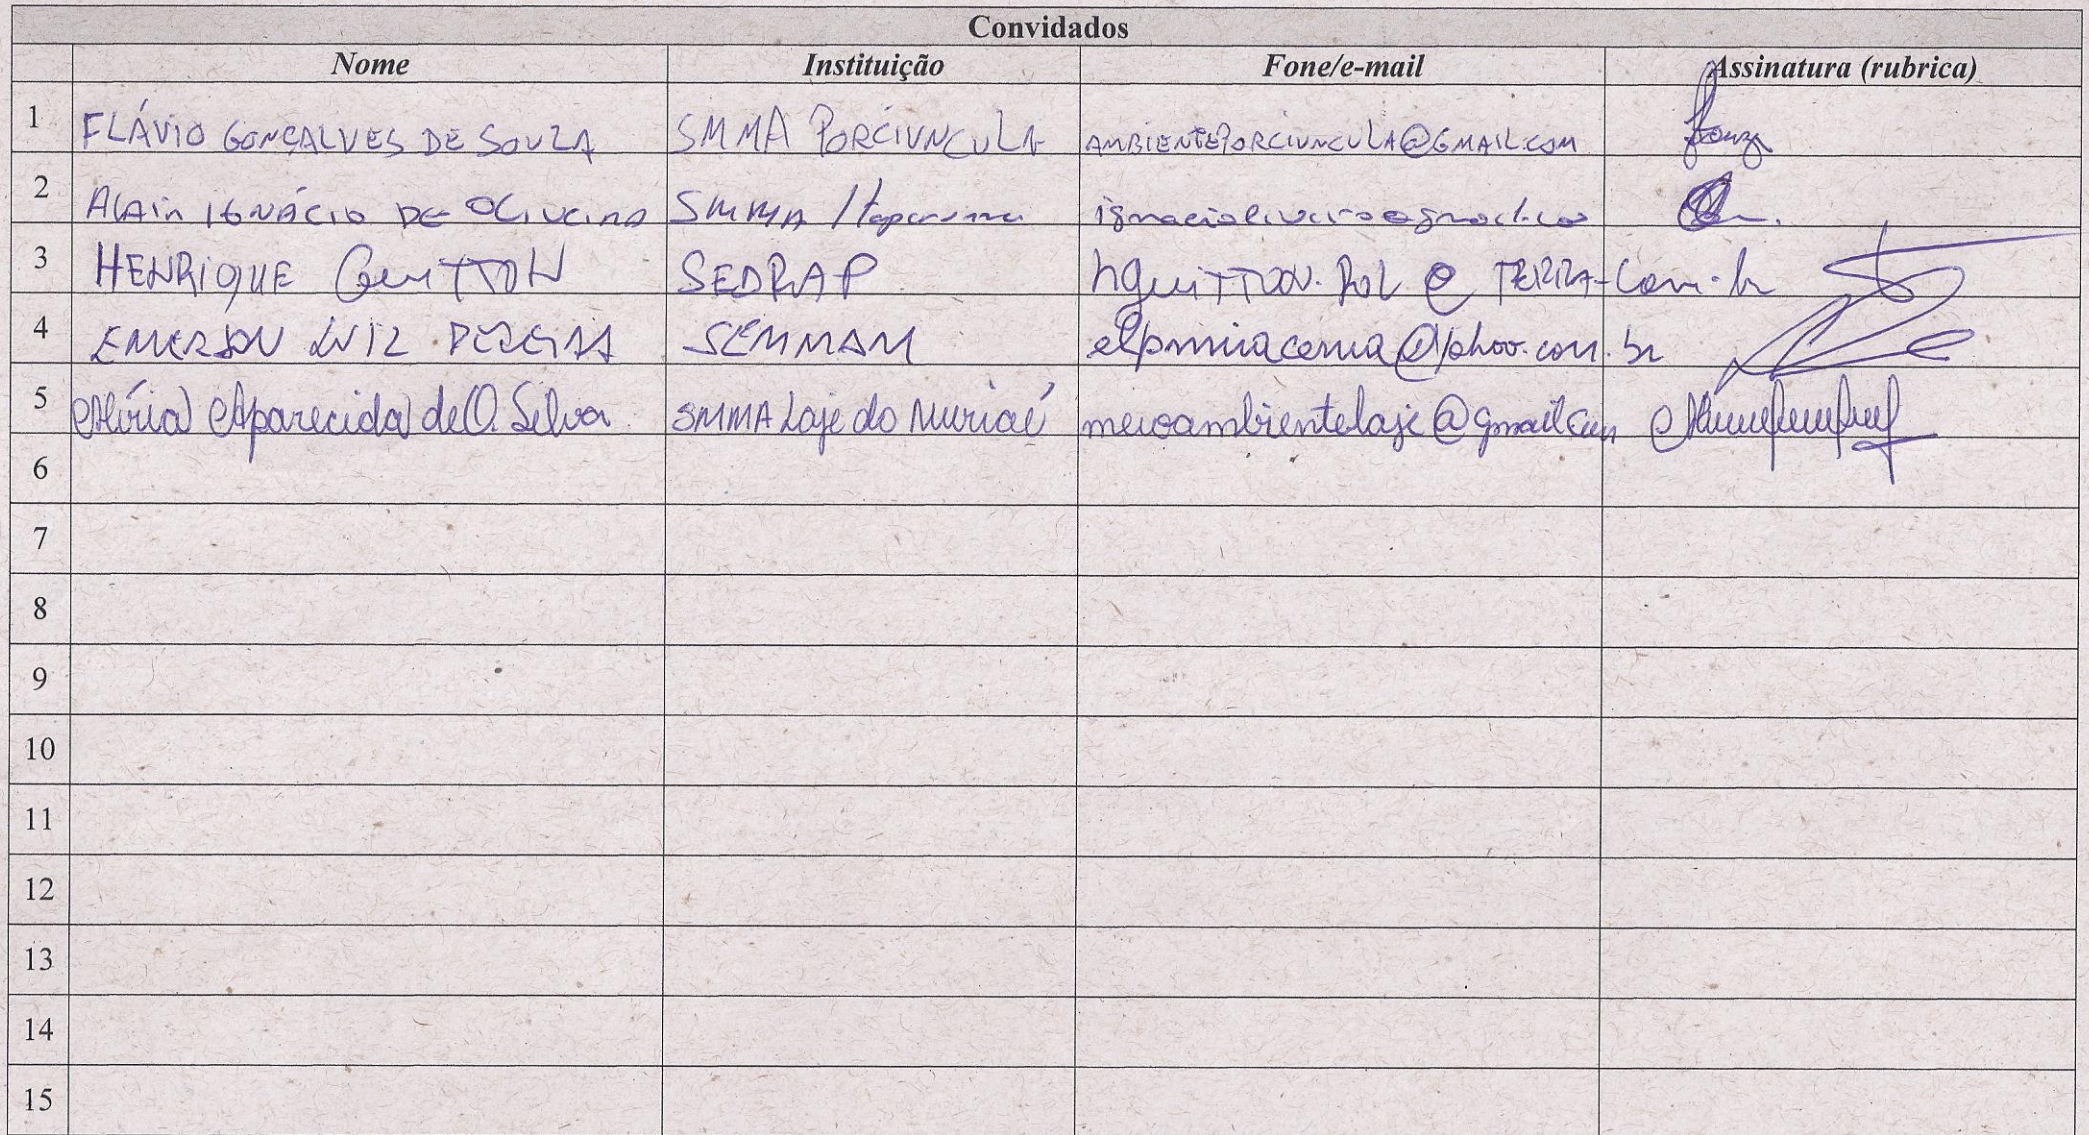 Convidados
Nome Instituição Fone/e-mail Assinatura (rubrica)
1 FLÁVIO GONÇALVES DE SOUZA SMMA PORCIUNCULA AMBIENTEPORCIUNCULA@GMAIL.COM Souza
2 ALAIN IGNÁCIO DE OLIVEIRA SMMA Itaperuna
3 HENRIQUE GUITTON SEDRAP hguitton.pol@TERRA.com.br
4 EMERSON LUIZ PEREIRA SEMMAM
5 Aparecida de O. Silva SMMA Laje do Muriaé meioambientelaje@gmail.com
6
7
8
9
10
11
12
13
14
15